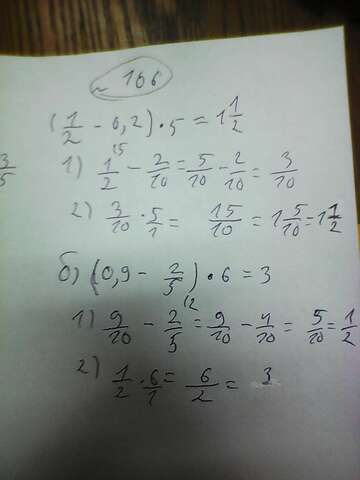 № 106
(1/2 - 0,2) · 5 = 1 1/2
3/5
1) 1/2 - 2/10 = 5/10 - 2/10 = 3/10
2) 3/10 · 5/1 = 15/10 = 1 5/10 = 1 1/2
б) (0,9 - 2/5) · 6 = 3
1) 9/10 - 2/5 = 9/10 - 4/10 = 5/10 = 1/2
2) 1/2 · 6/1 = 6/2 = 3